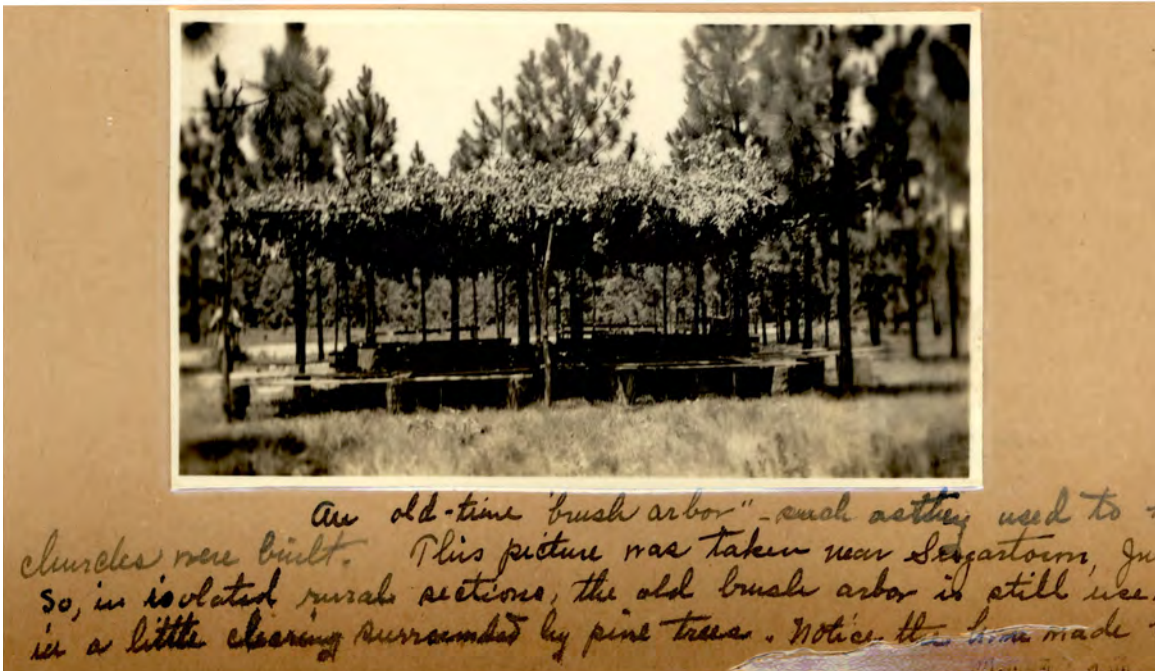 An old-time "brush arbor" - such as they used to
churches were built. This picture was taken near Segartown, Ju
So, in isolated rural sections, the old brush arbor is still use
in a little clearing surrounded by pine trees. Notice the home made